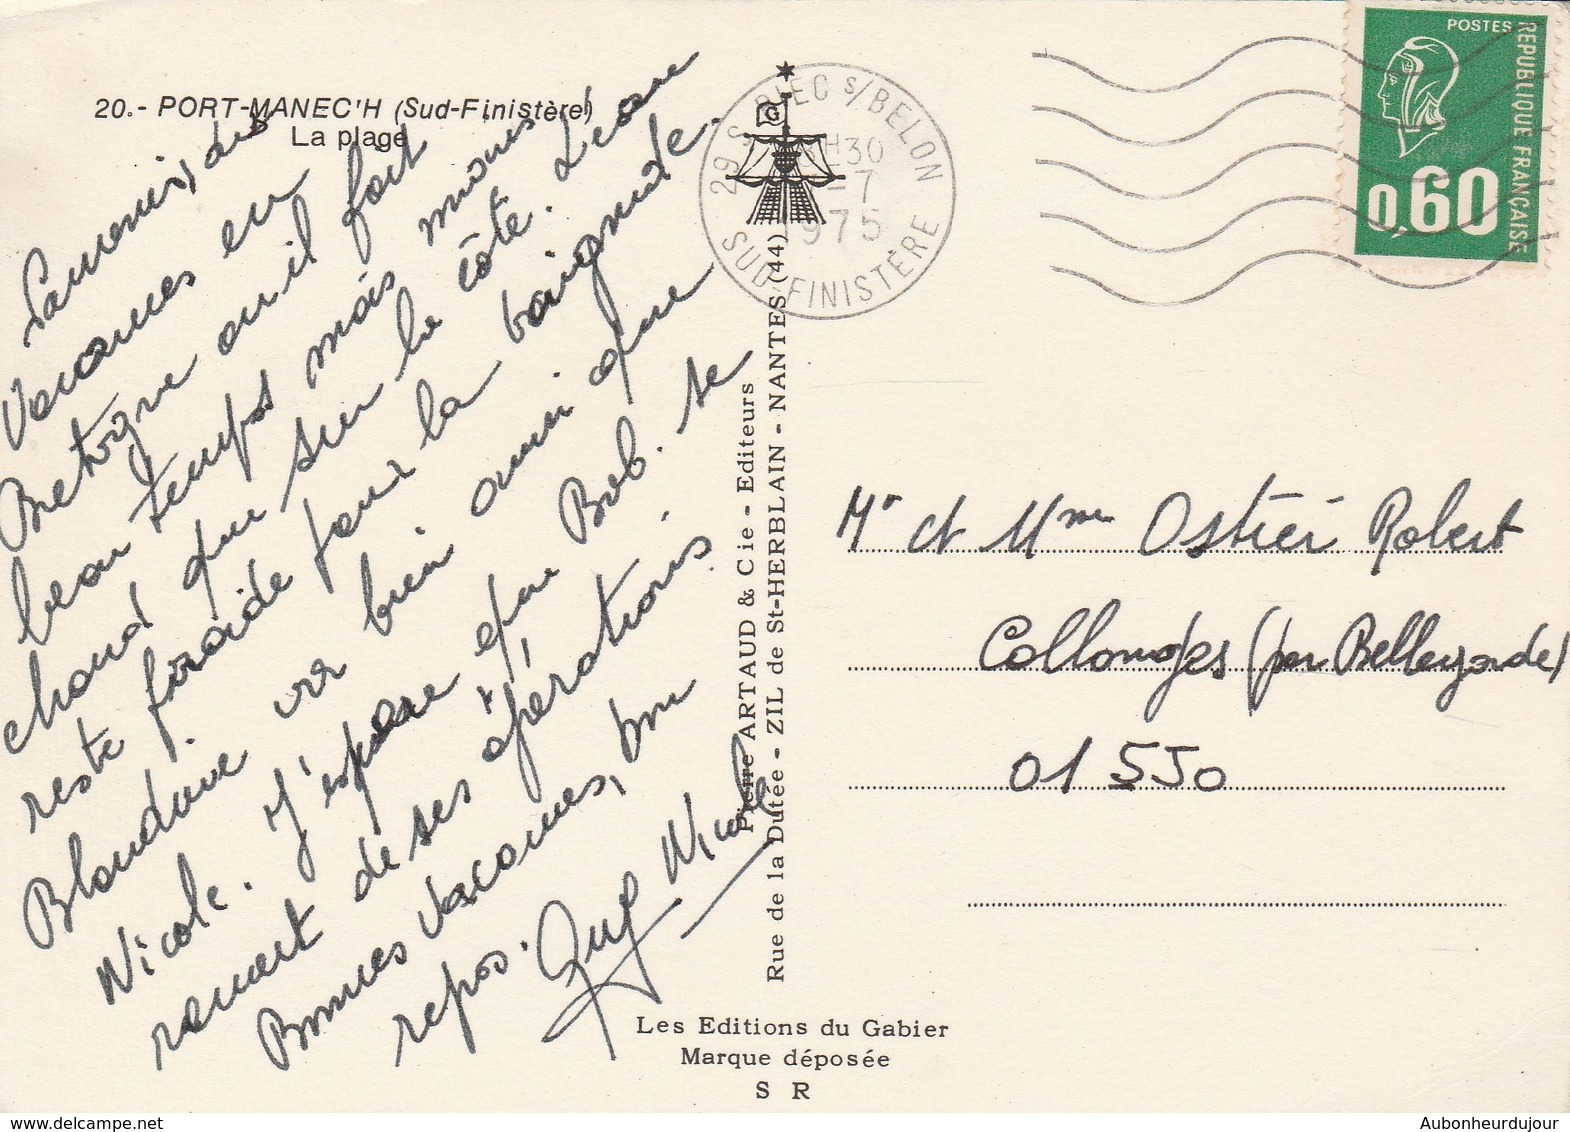 20.- PORT-MANEC'H (Sud-Finistère)
La plage
Souvenirs des
Vacances en
Bretagne où il fait
beau temps mais moins
chaud que sur la côte. L'eau
reste froide pour la baignade.
Blandine va bien ainsi que
Nicole. J'espère que Bob. se
remet de ses opérations
Bonnes Vacances, bon
repos. Guy Nicole
29 S RIEC s/BELON
H30
-7
1975
SUD-FINISTÈRE
G
POSTES
REPUBLIQUE FRANÇAISE
0,60
Pierre ARTAUD & Cie - Editeurs
Rue de la Dutée - ZIL de St-HERBLAIN - NANTES (44)
Mr et Mme Ostier Robert
Collonges (par Bellegarde)
01 550
Les Editions du Gabier
Marque déposée
S R
Aubonheurdujour